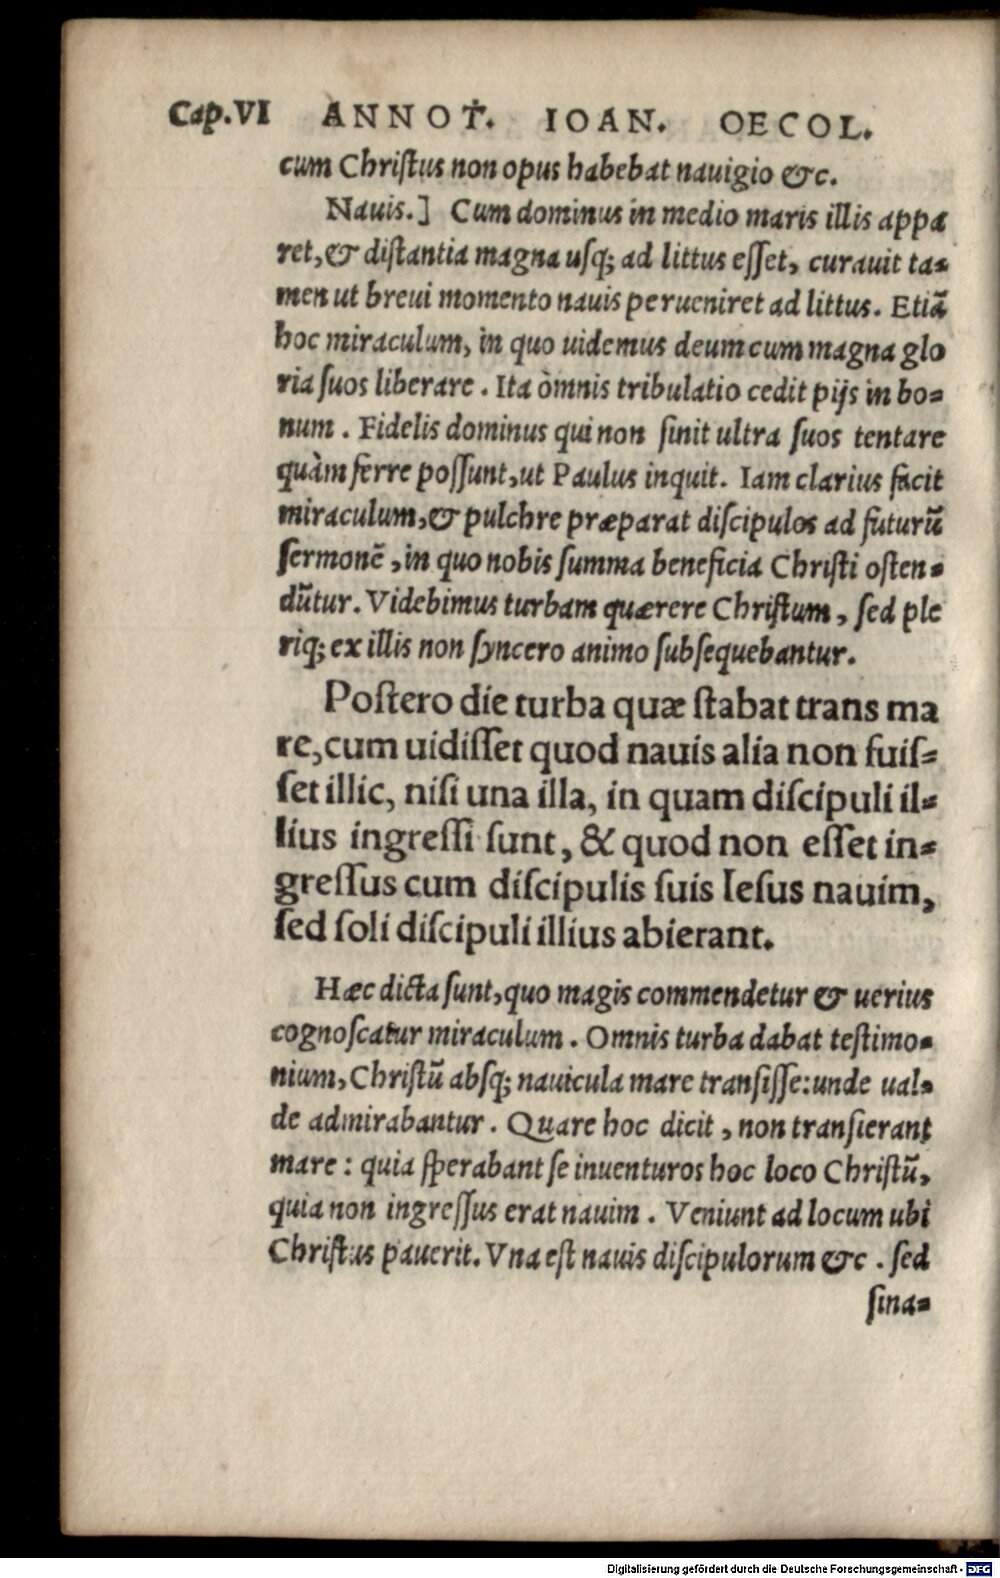 Cap.VI ANNOT. IOAN. OECOL.
cum Chriſtus non opus habebat nauigio &c.
Nauis.] Cum dominus in medio maris illis appa
ret,& diſtantia magna uſq; ad littus eſſet, curauit ta-
men ut breui momento nauis perueniret ad littus. Etiã
hoc miraculum, in quo uidemus deum cum magna glo
ria ſuos liberare. Ita òmnis tribulatio cedit pijs in bo-
num. Fidelis dominus qui non ſinit ultra ſuos tentare
quàm ferre poſſunt,ut Paulus inquit. Iam clarius facit
miraculum,& pulchre præparat diſcipulos ad futurũ
ſermonẽ,in quo nobis ſumma beneficia Chriſti oſten-
dũtur. Videbimus turbam quærere Chriſtum, ſed ple
riq; ex illis non ſyncero animo ſubſequebantur.
Poſtero die turba quæ ſtabat trans ma
re,cum uidiſſet quod nauis alia non fuiſ-
ſet illic, niſi una illa, in quam diſcipuli il-
lius ingreſſi ſunt, & quod non eſſet in-
greſſus cum diſcipulis ſuis Ieſus nauim,
ſed ſoli diſcipuli illius abierant.
Hæc dicta ſunt,quo magis commendetur & uerius
cognoſcatur miraculum. Omnis turba dabat teſtimo-
nium,Chriſtũ abſq; nauicula mare tranſiſſe:unde ual-
de admirabantur. Quare hoc dicit, non tranſierant
mare: quia ſperabant ſe inuenturos hoc loco Chriſtũ,
quia non ingreſſus erat nauim. Veniunt ad locum ubi
Chriſtus pauerit. Vna eſt nauis diſcipulorum &c. ſed
ſina-
Digitalisierung gefördert durch die Deutsche Forschungsgemeinschaft - DFG